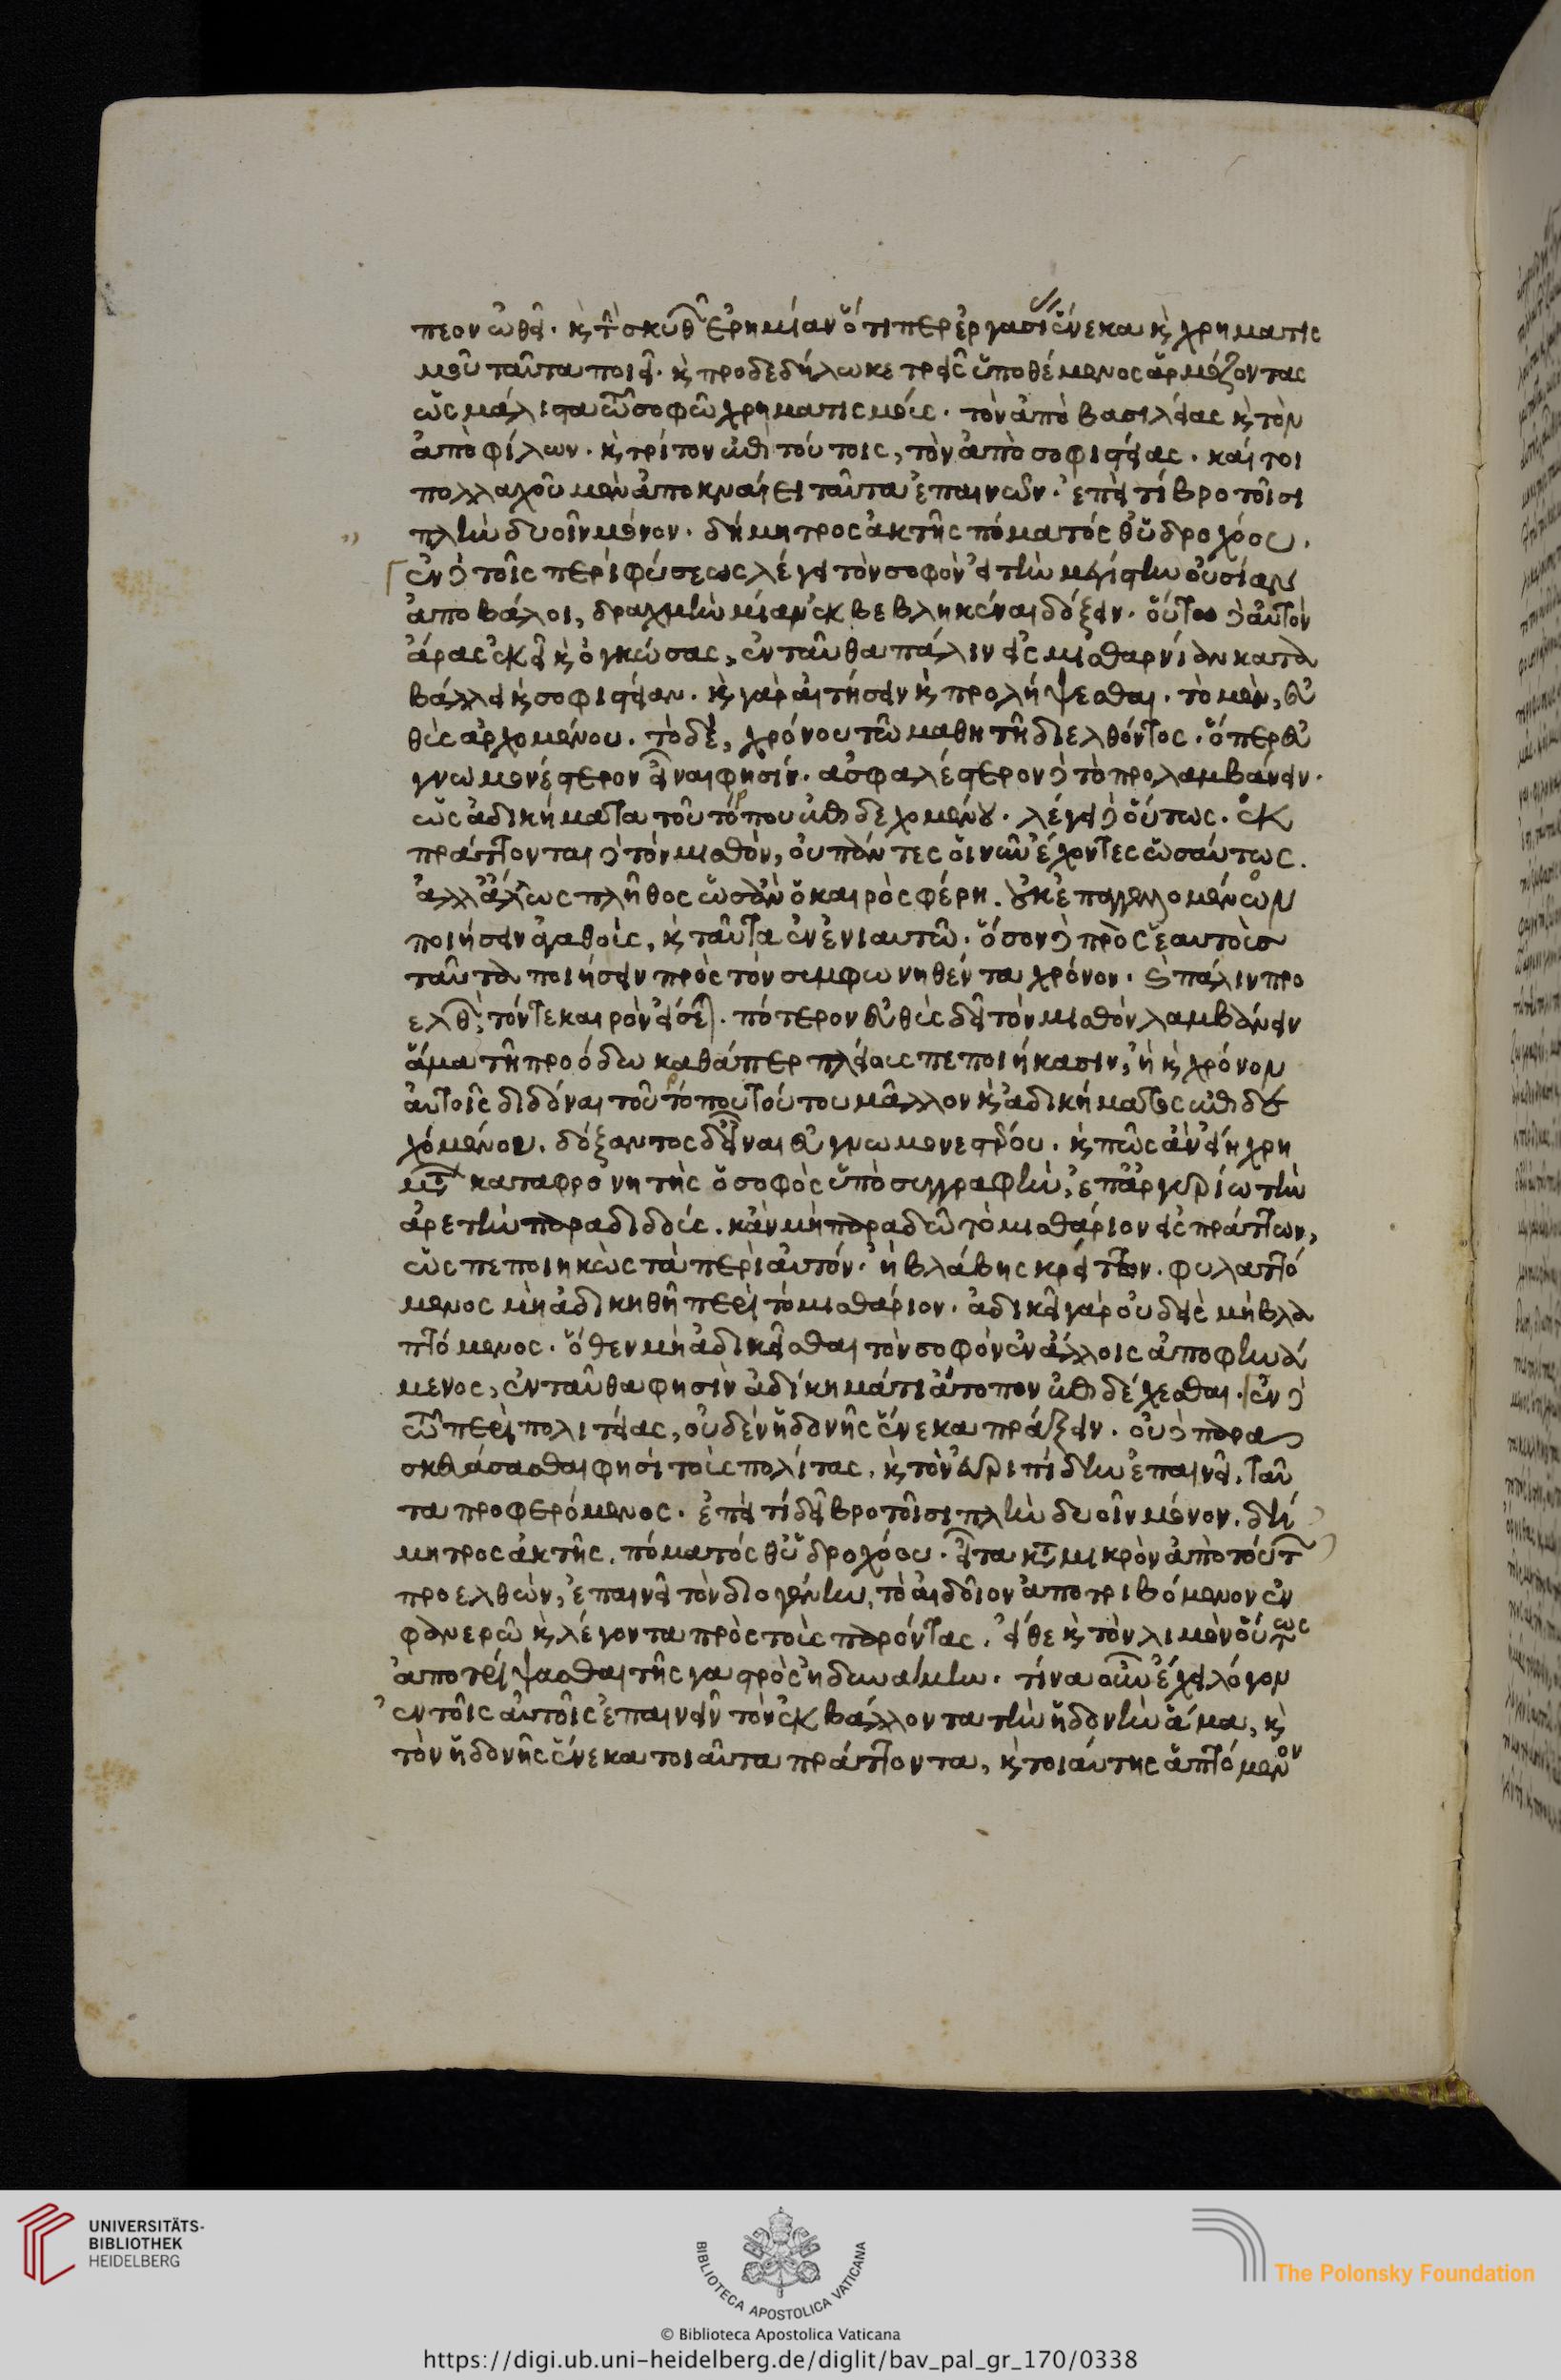 πεον ὠθεῖ. κ̀ τ̀ σκυθῶν ἐρημίαν ὅτι περ ἐργασίας ἕνεκα κ̀ χρηματισ
μοῦ ταῦτα ποιεῖ. κ̀ προδεδήλωκε τρεῖς ὑποθέμενος ἁρμόζοντας
ὡς μάλιστα τῶ σοφῶ χρηματισμούς. τὸν ἀπὸ βασιλείας κ̀ τὸν
ἀπὸ φίλων. κ̀ τρίτον ἐπὶ τούτοις, τὸν ἀπὸ σοφιστείας. καίτοι
πολλαχοῦ μὲν ἀποκναίει ταῦτα ἐπαινῶν. ἐπεὶ τί βροτοῖσι
πλὴν δυοῖν μόνον. δήμητρος ἀκτῆς πόματός θ' ὑδροχόου.
ἐν δὲ τοῖς περὶ φύσεως λέγει τὸν σοφὸν εἰ τὴν μεγίστην οὐσίαν
ἀποβάλοι, δραχμὴν μίαν ἐκβεβληκέναι δόξειν. οὕτω δ' αὐτὸν
ἄρας ἐκεῖ κ̀ ὀγκώσας, ἐνταῦθα πάλιν εἰς μισθαρνίαν κατα
βάλλει κ̀ σοφιστείαν. κ̀ γὰρ αἰτήσειν κ̀ προλήψεσθαι. τὸ μὲν, εὐ
θὺς ἀρχομένου. τὸ δὲ, χρόνου τῶ μαθητῆ διελθόντος. ὅπερ εὐ
γνωμονέστερον εἶναι φησίν. ἀσφαλέστερον δὲ τὸ προλαμβάνειν.
ὡς ἀδικήματα τοῦ τόπου ἐπιδεχομένου. λέγει δ' οὕτως. ἐκ
πράττονται δὲ τὸν μισθὸν, οὐ πάντες οἱ νοῦν ἔχοντες ὡσαύτως.
ἀλλ' ἄλλως πλῆθος ὡς ἂν ὁ καιρὸς φέρη. οὐκ ἐπαγγελλομένων
ποιήσειν ἀγαθοὺς, κ̀ ταῦτα ἐν ἐνιαυτῶ. ὅσον δὲ πρὸς ἑαυτοὺς
ταῦτα ποιήσειν πρὸς τὸν συμφωνηθέντα χρόνον. κ̀ πάλιν προ
ελθὼν, τόν τε καιρὸν εἴσεται. πότερον εὐθὺς δεῖ τὸν μισθὸν λαμβάνειν
ἅμα τῆ προόδω καθάπερ πλείους πεποιήκασιν, ἢ κ̀ χρόνον
αὐτοῖς διδόναι τοῦ τόπου τούτου μᾶλλον κ̀ ἀδικήματος ἐπιδε
χομένου. δόξαντος δ' εἶναι εὐγνωμονεστέρου. κ̀ πῶς ἂν εἴη χρη
μάτων καταφρονητὴς ὁ σοφὸς ὑπὸ συγγραφὴν, ἐπ' ἀργυρίω τὴν
ἀρετὴν παραδιδούς. κἂν μὴ παραδῶ τὸ μισθάριον εἰσπράττων,
ὡς πεποιηκὼς τὰ περὶ αὐτόν. ἢ βλάβης κρείττων. φυλαττό
μενος μὴ ἀδικηθῆ περὶ τὸ μισθάριον. ἀδικεῖ γὰρ οὐδεὶς μὴ βλα
πτόμενος. ὅθεν μὴ ἀδικεῖσθαι τὸν σοφὸν ἐν ἄλλοις ἀποφηνά
μενος, ἐνταῦθα φησὶν ἀδίκημά τι ἄτοπον ἐπιδέχεσθαι. ἐν δὲ
τῶ περὶ πολιτείας, οὐδὲν ἡδονῆς ἕνεκα πράξειν. οὐδὲ παρα
σκευάσασθαι φησὶ τοὺς πολίτας, κ̀ τὸν εὐριπίδην ἐπαινεῖ, ταῦ
τα προφερόμενος. ἐπεὶ τί δεῖ βροτοῖσι πλὴν δυοῖν μόνον. δή
μητρος ἀκτῆς, πόματός θ' ὑδροχόου. εἶτα κ̀ μικρὸν ἀπὸ τούτων
προελθὼν, ἐπαινεῖ τὸν διογένην, τὸ αἰδοῖον ἀποτριβόμενον ἐν
φανερῶ κ̀ λέγοντα πρὸς τοὺς παρόντας. εἴθε κ̀ τὸν λιμὸν οὕτως
ἀποτρίψασθαι τῆς γαστρὸς ἠδυνάμην. τίνα οὖν ἔχει λόγον
ἐν τοῖς αὐτοῖς ἐπαινεῖν τὸν ἐκβάλλοντα τὴν ἡδονὴν ἅμα, κ̀
τὸν ἡδονῆς ἕνεκα τοιαῦτα πράττοντα, κ̀ τοιαύτης ἁπτόμενον
UNIVERSITÄTS-
BIBLIOTHEK
HEIDELBERG
BIBLIOTECA APOSTOLICA VATICANA
The Polonsky Foundation
© Biblioteca Apostolica Vaticana
https://digi.ub.uni-heidelberg.de/diglit/bav_pal_gr_170/0338